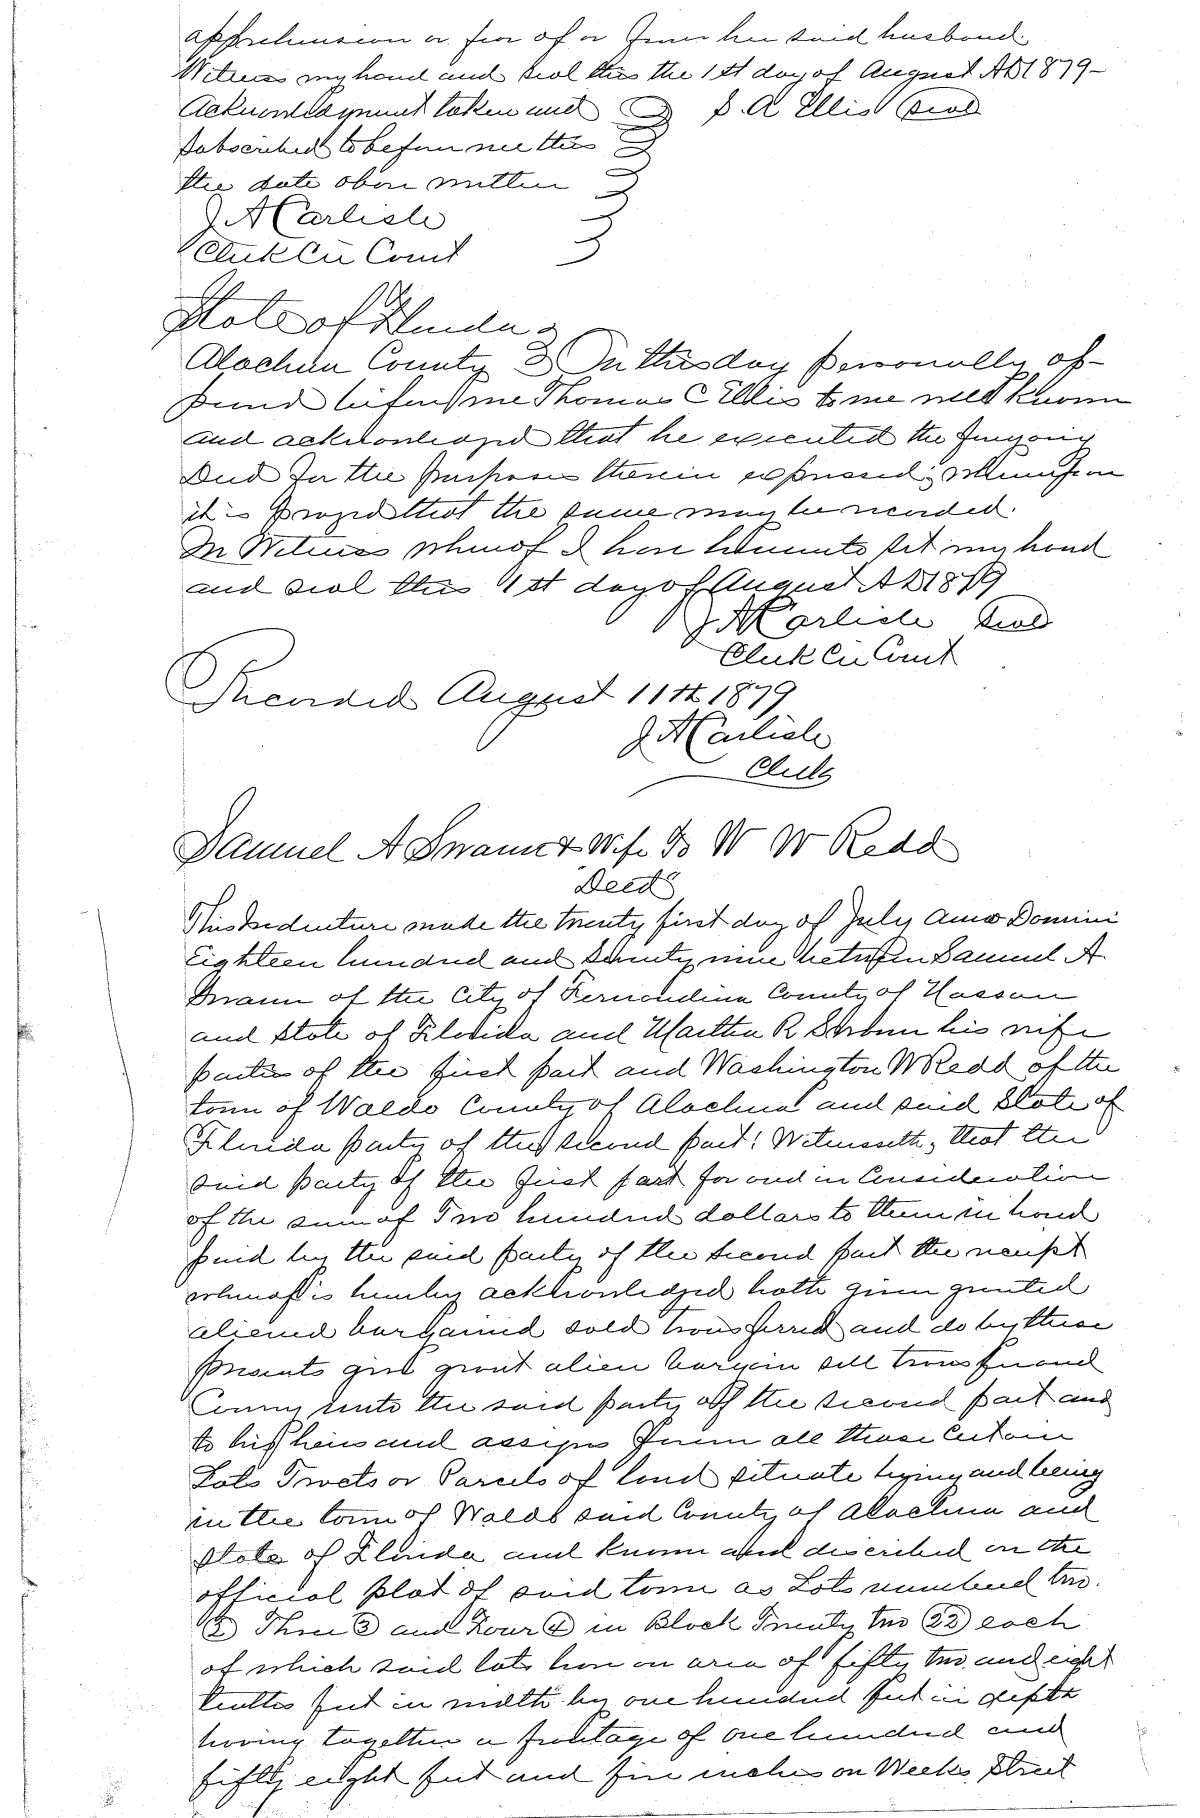 apprehension or fear of or from her said husband.
Witness my hand and seal this the 1st day of August AD 1879-
Acknowledgment taken and S. A Ellis Seal
Subscribed to before me this
the date above written
J A Carlisle
Clerk Cir Court
State of Florida
Alachua County On this day personally ap-
peared before me Thomas C Ellis to me well known
and acknowledged that he executed the foregoing
Deed for the purposes therein expressed; whereupon
it is prayed that the same may be recorded.
In Witness whereof I have hereunto set my hand
and seal this 1st day of August AD 1879
J A Carlisle Seal
Clerk Cir Court
Recorded August 11th 1879
J A Carlisle
Clerk
Samuel A Swann & Wife To W W Redd
Deed
This Indenture made the twenty first day of July Anno Domini
Eighteen hundred and Seventy nine between Samuel A
Swann of the City of Fernandina County of Nassau
and State of Florida and Martha R Swann his wife
parties of the first part and Washington W Redd of the
town of Waldo County of Alachua and said State of
Florida party of the second part: Witnesseth, that the
said party of the first part for and in Consideration
of the sum of Two hundred dollars to them in hand
paid by the said party of the second part the receipt
whereof is hereby acknowledged hath given granted
aliened bargained sold transferred and do by these
presents give grant alien bargain sell transfer and
Convey unto the said party of the second part and
to his heirs and assigns forever all those Certain
Lots Tracts or Parcels of land situate lying and being
in the town of Waldo said County of Alachua and
State of Florida and known and described on the
official plat of said town as Lots numbered two.
(2) Three (3) and Four (4) in Block Twenty two (22) each
of which said lots have an area of fifty two and eight
tenths feet in width by one hundred feet in depth
having together a frontage of one hundred and
fifty eight feet and five inches on Weeks Street